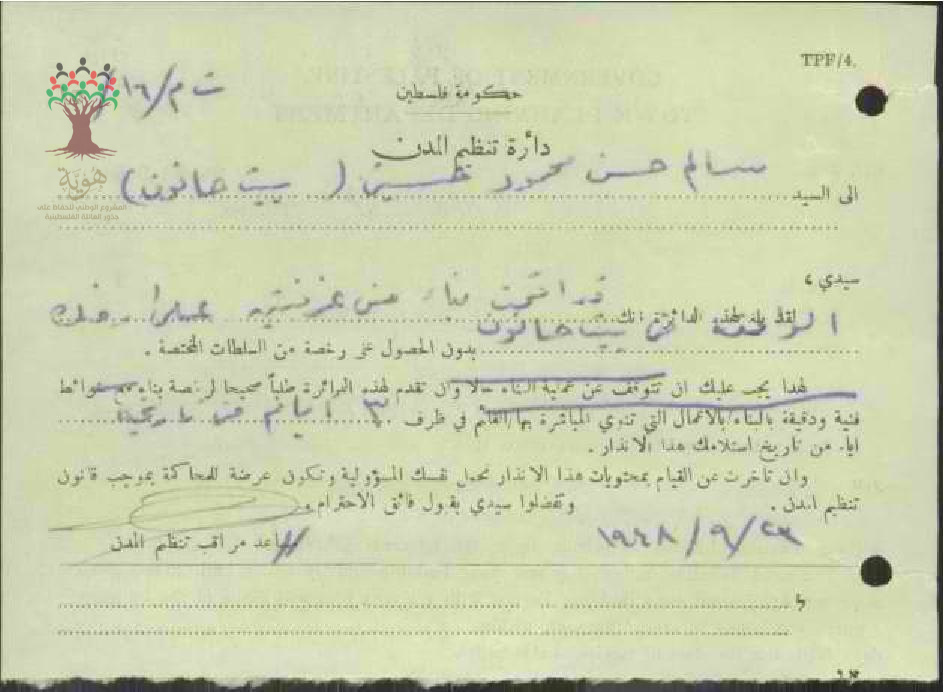 TPF/4.
ت م/١٦/
حكومة فلسطين
دائرة تنظيم المدن
هويّة
المشروع الوطني للحفاظ على
جذور العائلة الفلسطينية
الى السيد سالم حسن محمود حسين (بيت حانون)
سيدي ،
لقد بلغ لهذه الدائرة انك قد اقمت بناء من
الواقعة في بيت حانون بدون الحصول على رخصة من السلطات المختصة .
لهذا يجب عليك ان تتوقف عن عملية البناء حالا وان تقدم لهذه الدائرة طلباً صحيحا لرخصة بناء مع خوائط
فنية ودقيقة بالبناء/بالاعمال التي تنوي المباشرة بها/القائم في ظرف ٣ ايام من تاريخه
ايام من تاريخ استلامك هذا الانذار .
وان تأخرت عن القيام بمحتويات هذا الانذار تحمل نفسك المسؤولية وتكون عرضة للمحاكمة بموجب قانون
تنظيم المدن . وتفضلوا سيدي بقبول فائق الاحترام .
١٩٤٨/٩/٢٣
مساعد مراقب تنظيم المدن